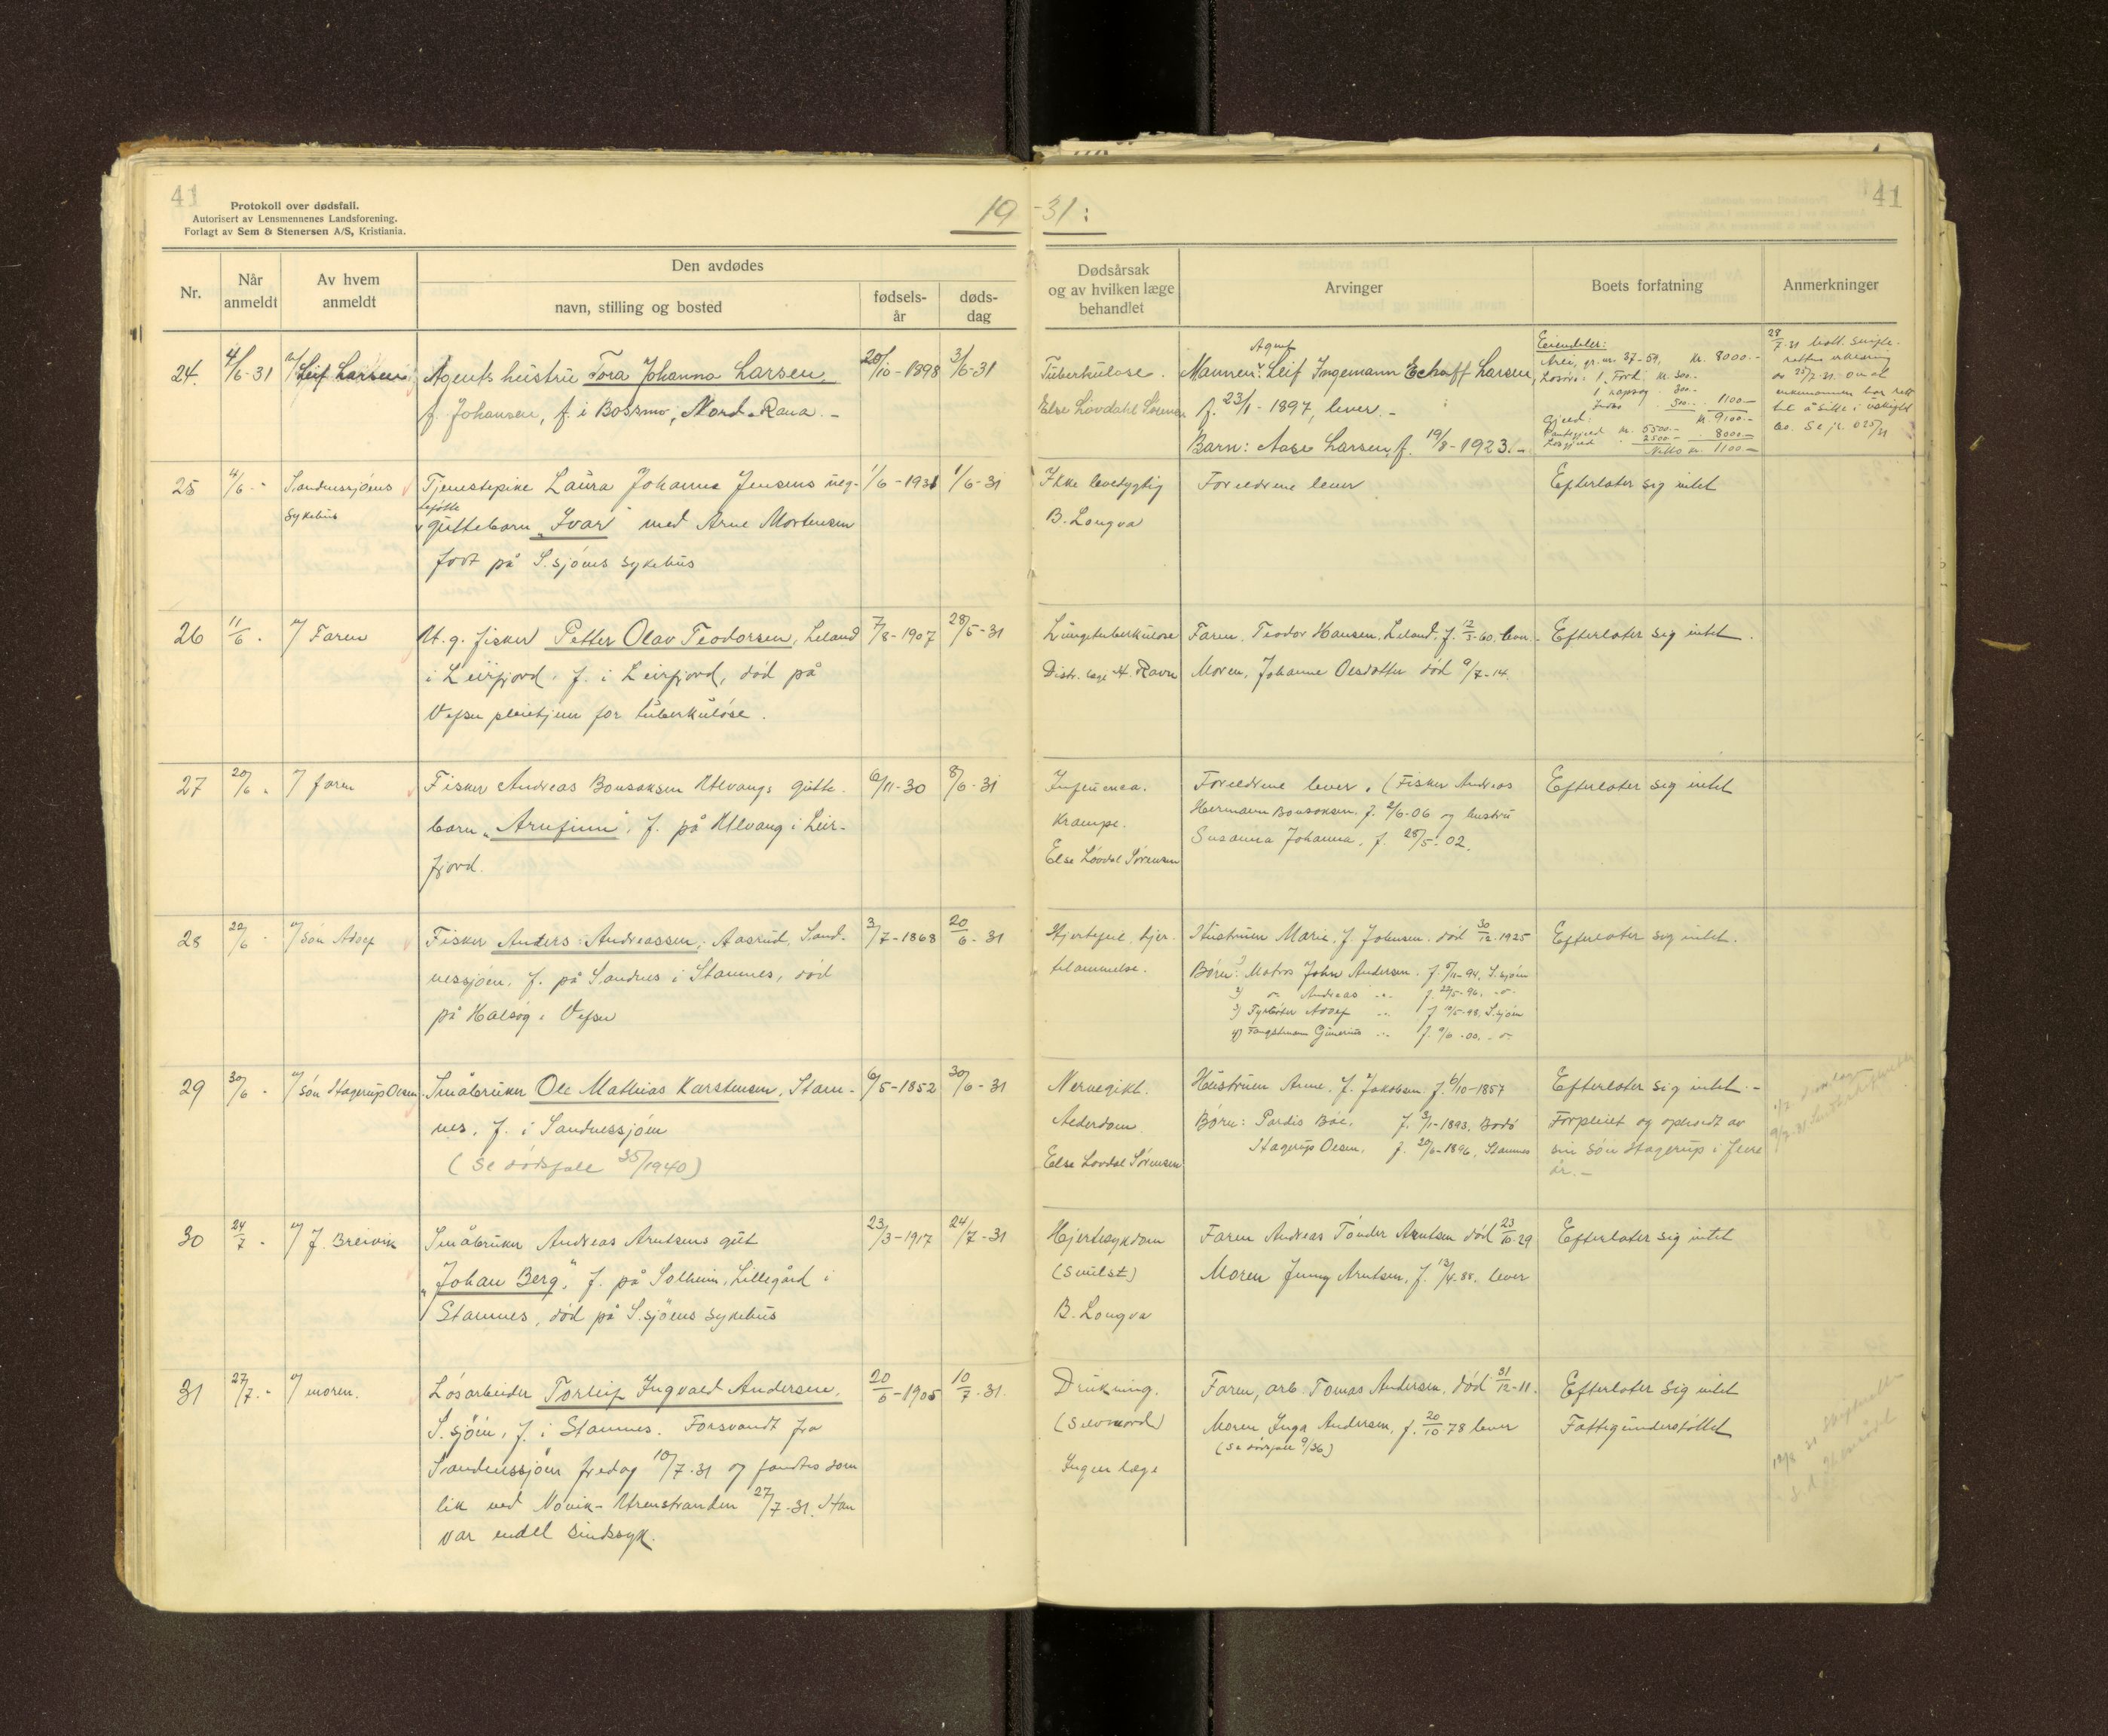 41
Protokoll over dødsfall.
Autorisert av Lensmennenes Landsforening.
Forlagt av Sem & Stenersen A/S, Kristiania.
19 -31:
41
Nr.
Når anmeldt
Av hvem anmeldt
Den avdødes
navn, stilling og bosted
fødsels-år
døds-dag
Dødsårsak og av hvilken læge behandlet
Arvinger
Boets forfatning
Anmerkninger
24. 4/6-31 v/ Leif Larsen
Agents hustru Tora Johanna Larsen,
f. Johansen, f. i Bossmo, Nord-Rana.-
20/10-1898 3/6-31
Tuberkulose.
Else Løvdahl Sørensen
Agent
Mannen: Leif Ingemann Echoff Larsen,
f. 23/1-1897, lever.-
Barn: Aase Larsen, f. 19/8-1923.-
Eiendeler:
gr.nr. 37-59, kr. 8000.-
Løsøre: 1 Ford kr. 300.-
300.-
Indbo 500.- 1100.-
kr. 9100.-
Gjeld:
Pantegjeld kr. 5500.-
Løsgjeld 2500.- 8000.-
Netto kr. 1100.-
28/7-31 mott. skifte-
rettens erklæring
av 25/7-31 om at
enkemannen har rett
til å sitte i uskiftet
bo. Se jr. 825/31
25 4/6 -"- Sandnessjøens
Sykehus
Tjenestepike Laura Johanne Jensens ueg-
tefødte
guttebarn "Ivar" med Arne Mortensen
født på S.sjøens Sykehus
1/6-1931 1/6-31
Ikke levedygtig
B. Longva
Foreldrene lever
Efterlater sig intet
26 11/6 - v/ Faren
U.g. fisker Petter Olav Teodorsen, Leland
i Leirfjord, f. i Leirfjord, død på
Vefsn pleiehjem for tuberkuløse.
7/8-1907 28/5-31
Lungetuberkulose
Distr. læge H. Ravn
Faren, Teodor Hansen, Leland, f. 12/3-60, lever.
Moren, Johanne Olsdatter død 9/7-14.
Efterlater sig intet.
27 20/6 - v/ faren
Fisker Andreas Bonsaksen Ulvangs gutte-
barn "Arnfinn", f. på Ulvang i Leir-
fjord.
6/11-30 8/6-31
Influenca.
Krampe.
Else Løvdal Sørensen
Foreldrene lever. (Fisker Andreas
Hermann Bonsaksen, f. 2/6-06 og hustru
Susanna Johanna, f. 28/5-02.
Efterlater sig intet
28 22/6 - v/ Søn Adolf
Fisker Anders Andreassen, Aasrud, Sand-
nessjøen, f. på Sandnes i Stamnes, død
på Halsøy i Vefsn
3/7-1868 20/6-31
Hjertefeil, hjer-
telammelse.
Hustruen Marie, f. Johnsen, død 30/12-1925
Børn: 1) Matros John Andersen, f. 5/11-94, S.sjøen
2) -"- Andreas -"- f. 22/5-96, -"-
3) Fyrbøter Adolf -"- f. 10/5-98, S.sjøen
4) Fangstmann -"- f. 9/6-00, -"-
Efterlater sig intet.
29 30/6 - v/ Søn Hagerup Olsen
Småbruker Ole Mathias Karstensen, Stam-
nes, f. i Sandnessjøen
(Se dødsfall 35/1940)
6/5-1852 30/6-31
Nervegikt.
Alderdom
Else Løvdal Sørensen
Hustruen Anne, f. Jakobsen, f. 6/10-1857
Børn: Pardis Bøe, f. 3/1-1893, Bodø
Hagerup Olsen, f. 20/6-1896, Stamnes
Efterlater sig intet.-
Forpleiet og opholdt av
sin søn Hagerup i flere
år.-
30 24/7 - v/ J. Breivik
Småbruker Andreas Arntsens gut
"Johan Berg", f. på Solheim, Lillegård i
Stamnes, død på S.sjøens Sykehus
23/3-1917 24/7-31
Hjertesykdom
(Svulst)
B. Longva
Faren Andreas Tønder Arntsen død 23/10-29
Moren Jenny Arntsen, f. 12/4-88, lever
Efterlater sig intet
31 27/7 -"- v/ moren.
Løsarbeider Torleif Ingvald Andersen,
S.sjøen, f. i Stamnes. Forsvandt fra
Sandnessjøen fredag 10/7-31 og fandtes som
lik ved Novik-Urenstranden 27/7-31. Han
var endel sindssyk.
20/6-1905 10/7-31
Drukning.
(Selvmord)
Ingen læge
Faren, arb. Tomas Andersen, død 31/12-11.
Moren Inga Andersen, f. 20/10 78 lever
(Se dødsfall 9/36)
Efterlater sig intet
Fattigunderstøttet